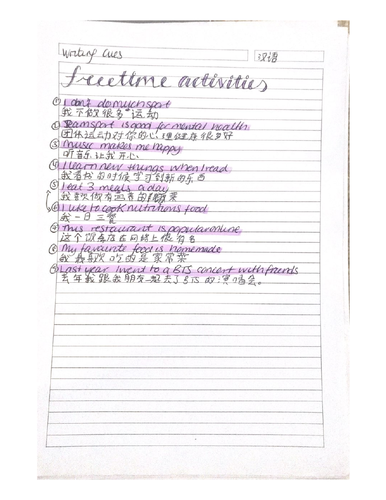 Writing Cues 汉语
freetime activities
① I don't do much sport
我不做很多运动
② Teamsport is good for mental health
团体运动对你的心理健康很多好
③ Music makes me happy
听音乐让我开心
④ I learn new things when I read
我看书的时候学习到新的东西
⑤ I eat 3 meals a day
我喜欢做有营养的菜
⑥ I like to cook nutritious food
我一日三餐
⑦ This restaurant is popular online
这个饭店在网络上很有名
⑧ My favourite food is homemade
我最喜欢吃的是家常菜
⑨ Last year I went to a BTS concert with friends
去年我跟我朋友一起去了BTS的演唱会。